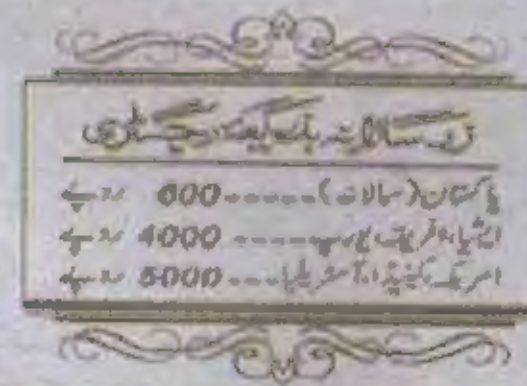 زرِ سالانہ بذریعہ رجسٹری
پاکستان (سالانہ)-----600 روپے
ایشیا، افریقہ، یورپ-----4000 روپے
امریکہ، کینیڈا، آسٹریلیا----5000 روپے